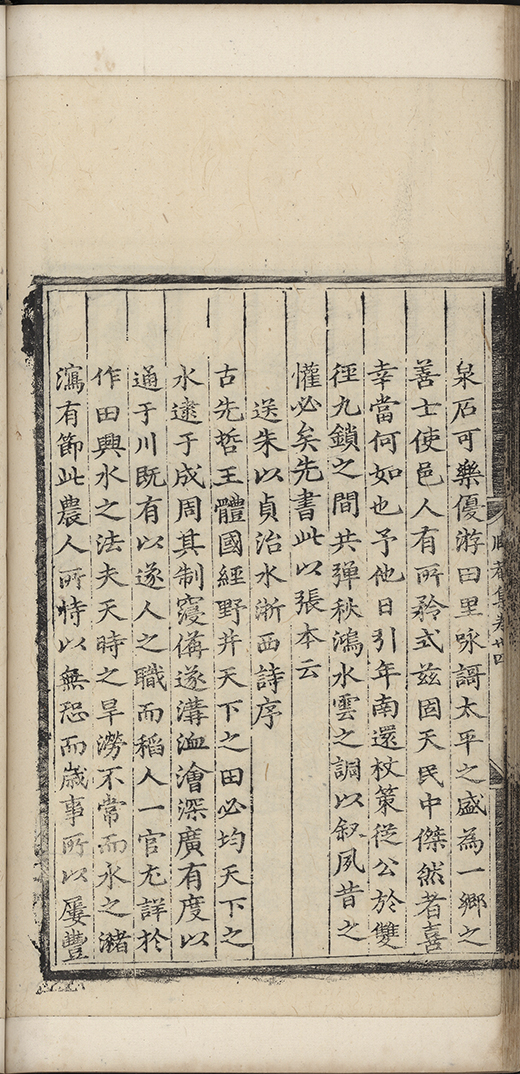 泉石可樂優游田里咏謌太平之盛為一鄉之
善士使邑人有所矜式兹固天民中傑然者喜
幸當何如也予他日引年南還杖策從公於雙
徑九鎖之間共彈秋鴻水雲之調以叙夙昔之
懽必矣先書此以張本云
送朱以貞治水浙西詩序
古先哲王體國經野井天下之田必均天下之
水逮于成周其制寖俻遂溝洫澮深廣有度以
通于川既有以遂人之職而稻人一官尤詳於
作田興水之法夫天時之旱澇不常而水之瀦
瀉有節此農人所恃以無恐而歲事所以屢豐
集卷廿四